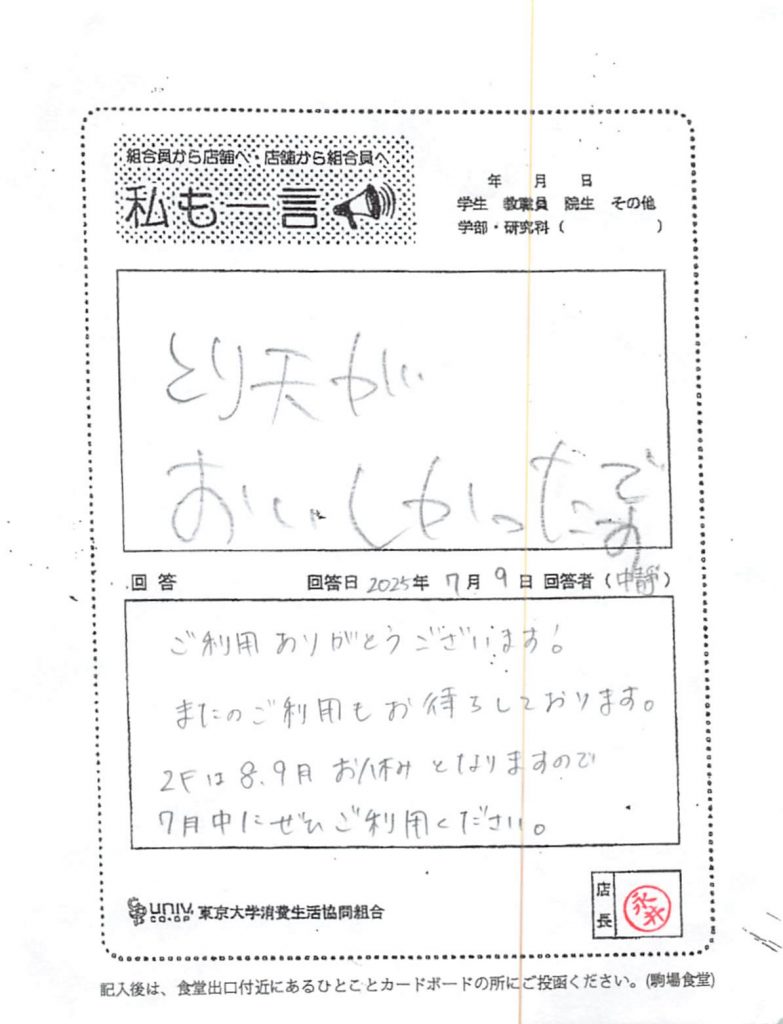 組合員から店舗へ・店舗から組合員へ
私も一言
年 月 日
学生 教職員 院生 その他
学部・研究科( )
とり天が
おいしかったです
回答 回答日 2025年 7月 9日 回答者(中静)
ご利用ありがとうございます!
またのご利用もお待ちしております。
2Fは8.9月 お休みとなりますので
7月中にぜひご利用ください。
univ co-op 東京大学消費生活協同組合
店長
永井
記入後は、食堂出口付近にあるひとことカードボードの所にご投函ください。(駒場食堂)